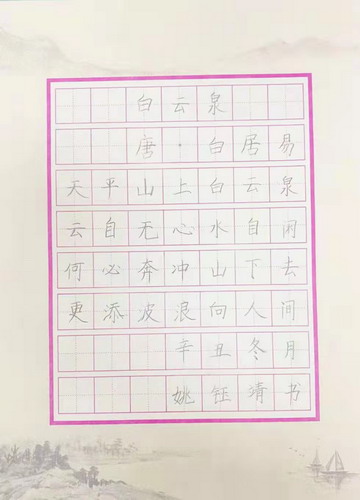 白云泉
唐·白居易
天平山上白云泉
云自无心水自闲
何必奔冲山下去
更添波浪向人间
辛丑冬月
姚钰靖书